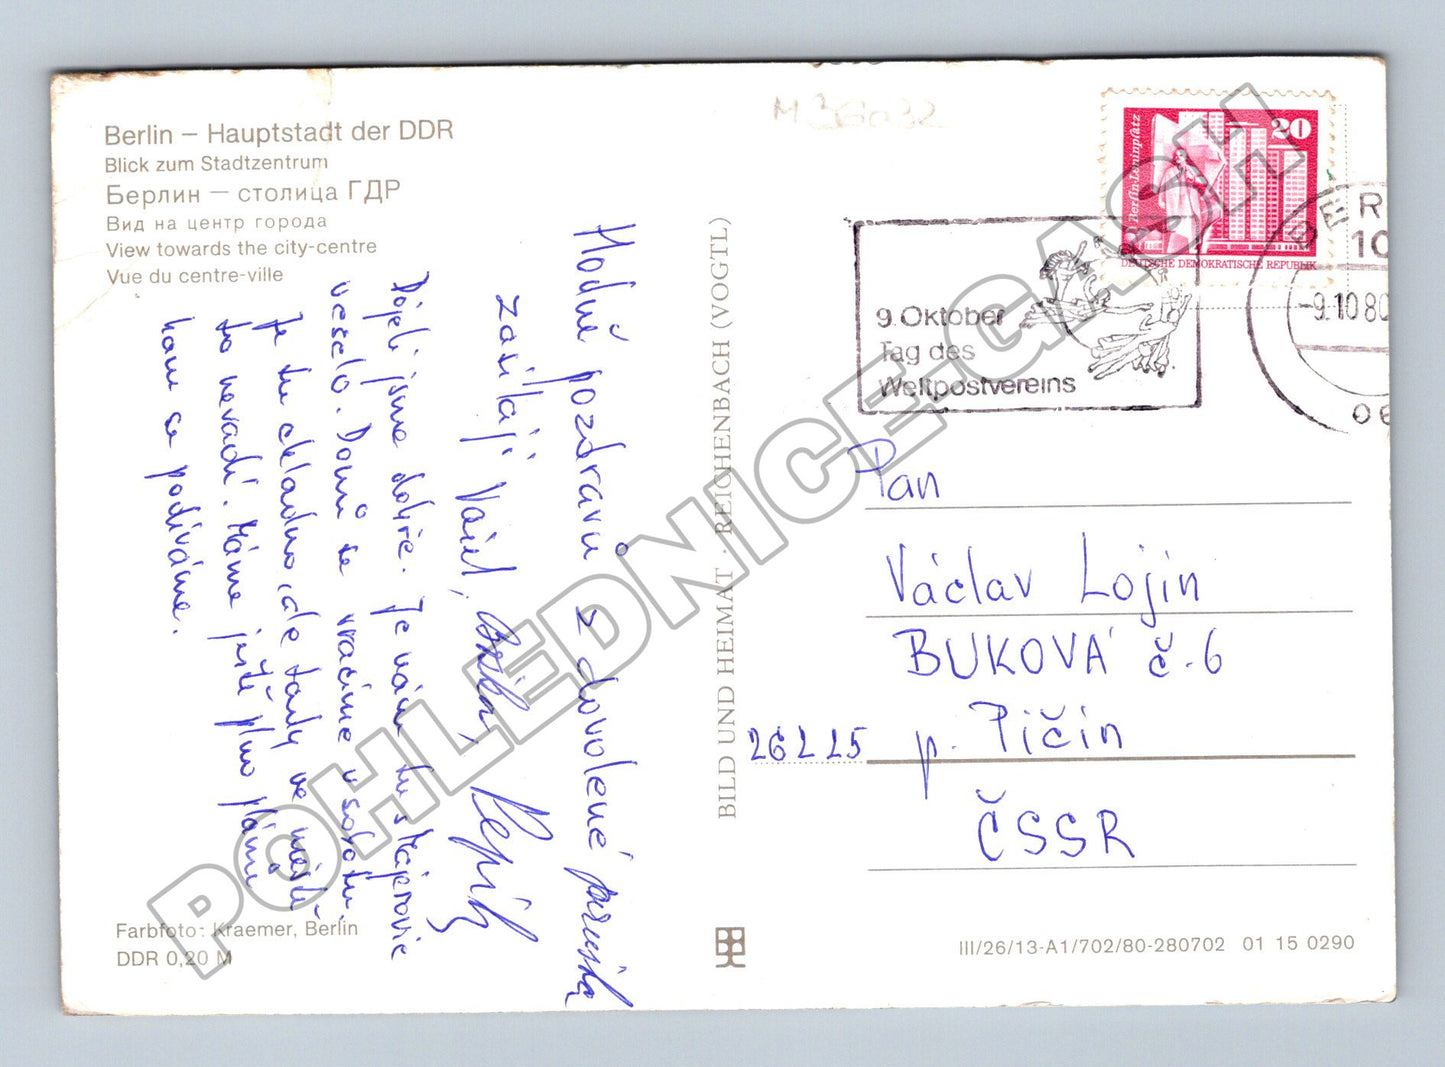 Berlin – Hauptstadt der DDR
Blick zum Stadtzentrum
Берлин – столица ГДР
Вид на центр города
View towards the city-centre
Vue du centre-ville
Hodně pozdravů z dovolené
zasílají Vám,
Dojeli jsme dobře. Je nám tu
veselo. Domů se vracíme v sobotu.
Je tu chladno, ale tady ve městě
to nevadí. Máme ještě plno plánů
kam se podíváme.
Farbfoto: Kraemer, Berlin
DDR 0,20 M
BILD UND HEIMAT · REICHENBACH (VOGTL)
20
Berlin-Leninplatz
DEUTSCHE DEMOKRATISCHE REPUBLIK
9. Oktober
Tag des
Weltpostvereins
-9.10 80
Pan
Václav Lojin
BUKOVÁ č. 6
26225 p. Pičín
ČSSR
III/26/13-A1/702/80-280702 01 15 0290
POHLEDNICE-GASH